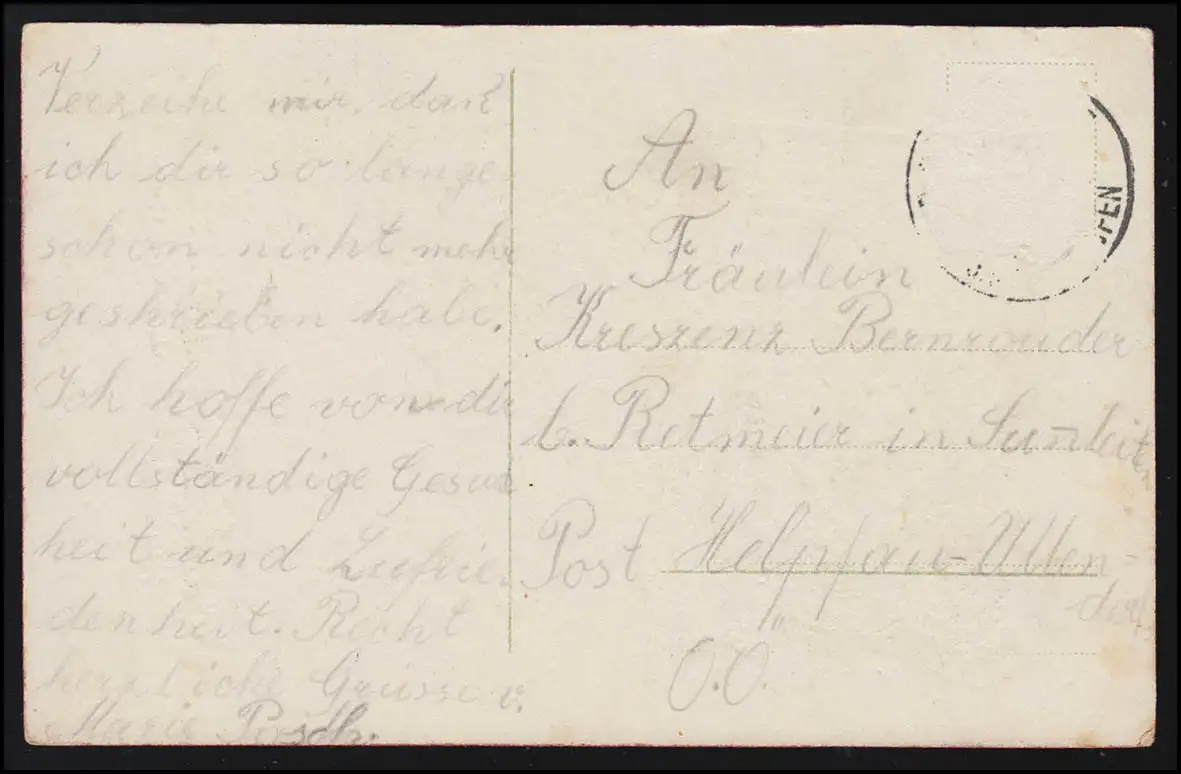 Verzeihe mir, daß
ich dir so lange
schon nicht mehr
geschrieben habe.
Ich hoffe von dir
vollständige Gesund
heit und Zufrie-
denheit. Recht
herzliche Grüsse v.
Marie
An
Fräulein
Kreszenz
b. Retmeier in
Post Helpfau-Utten-
dorf
O.Ö.